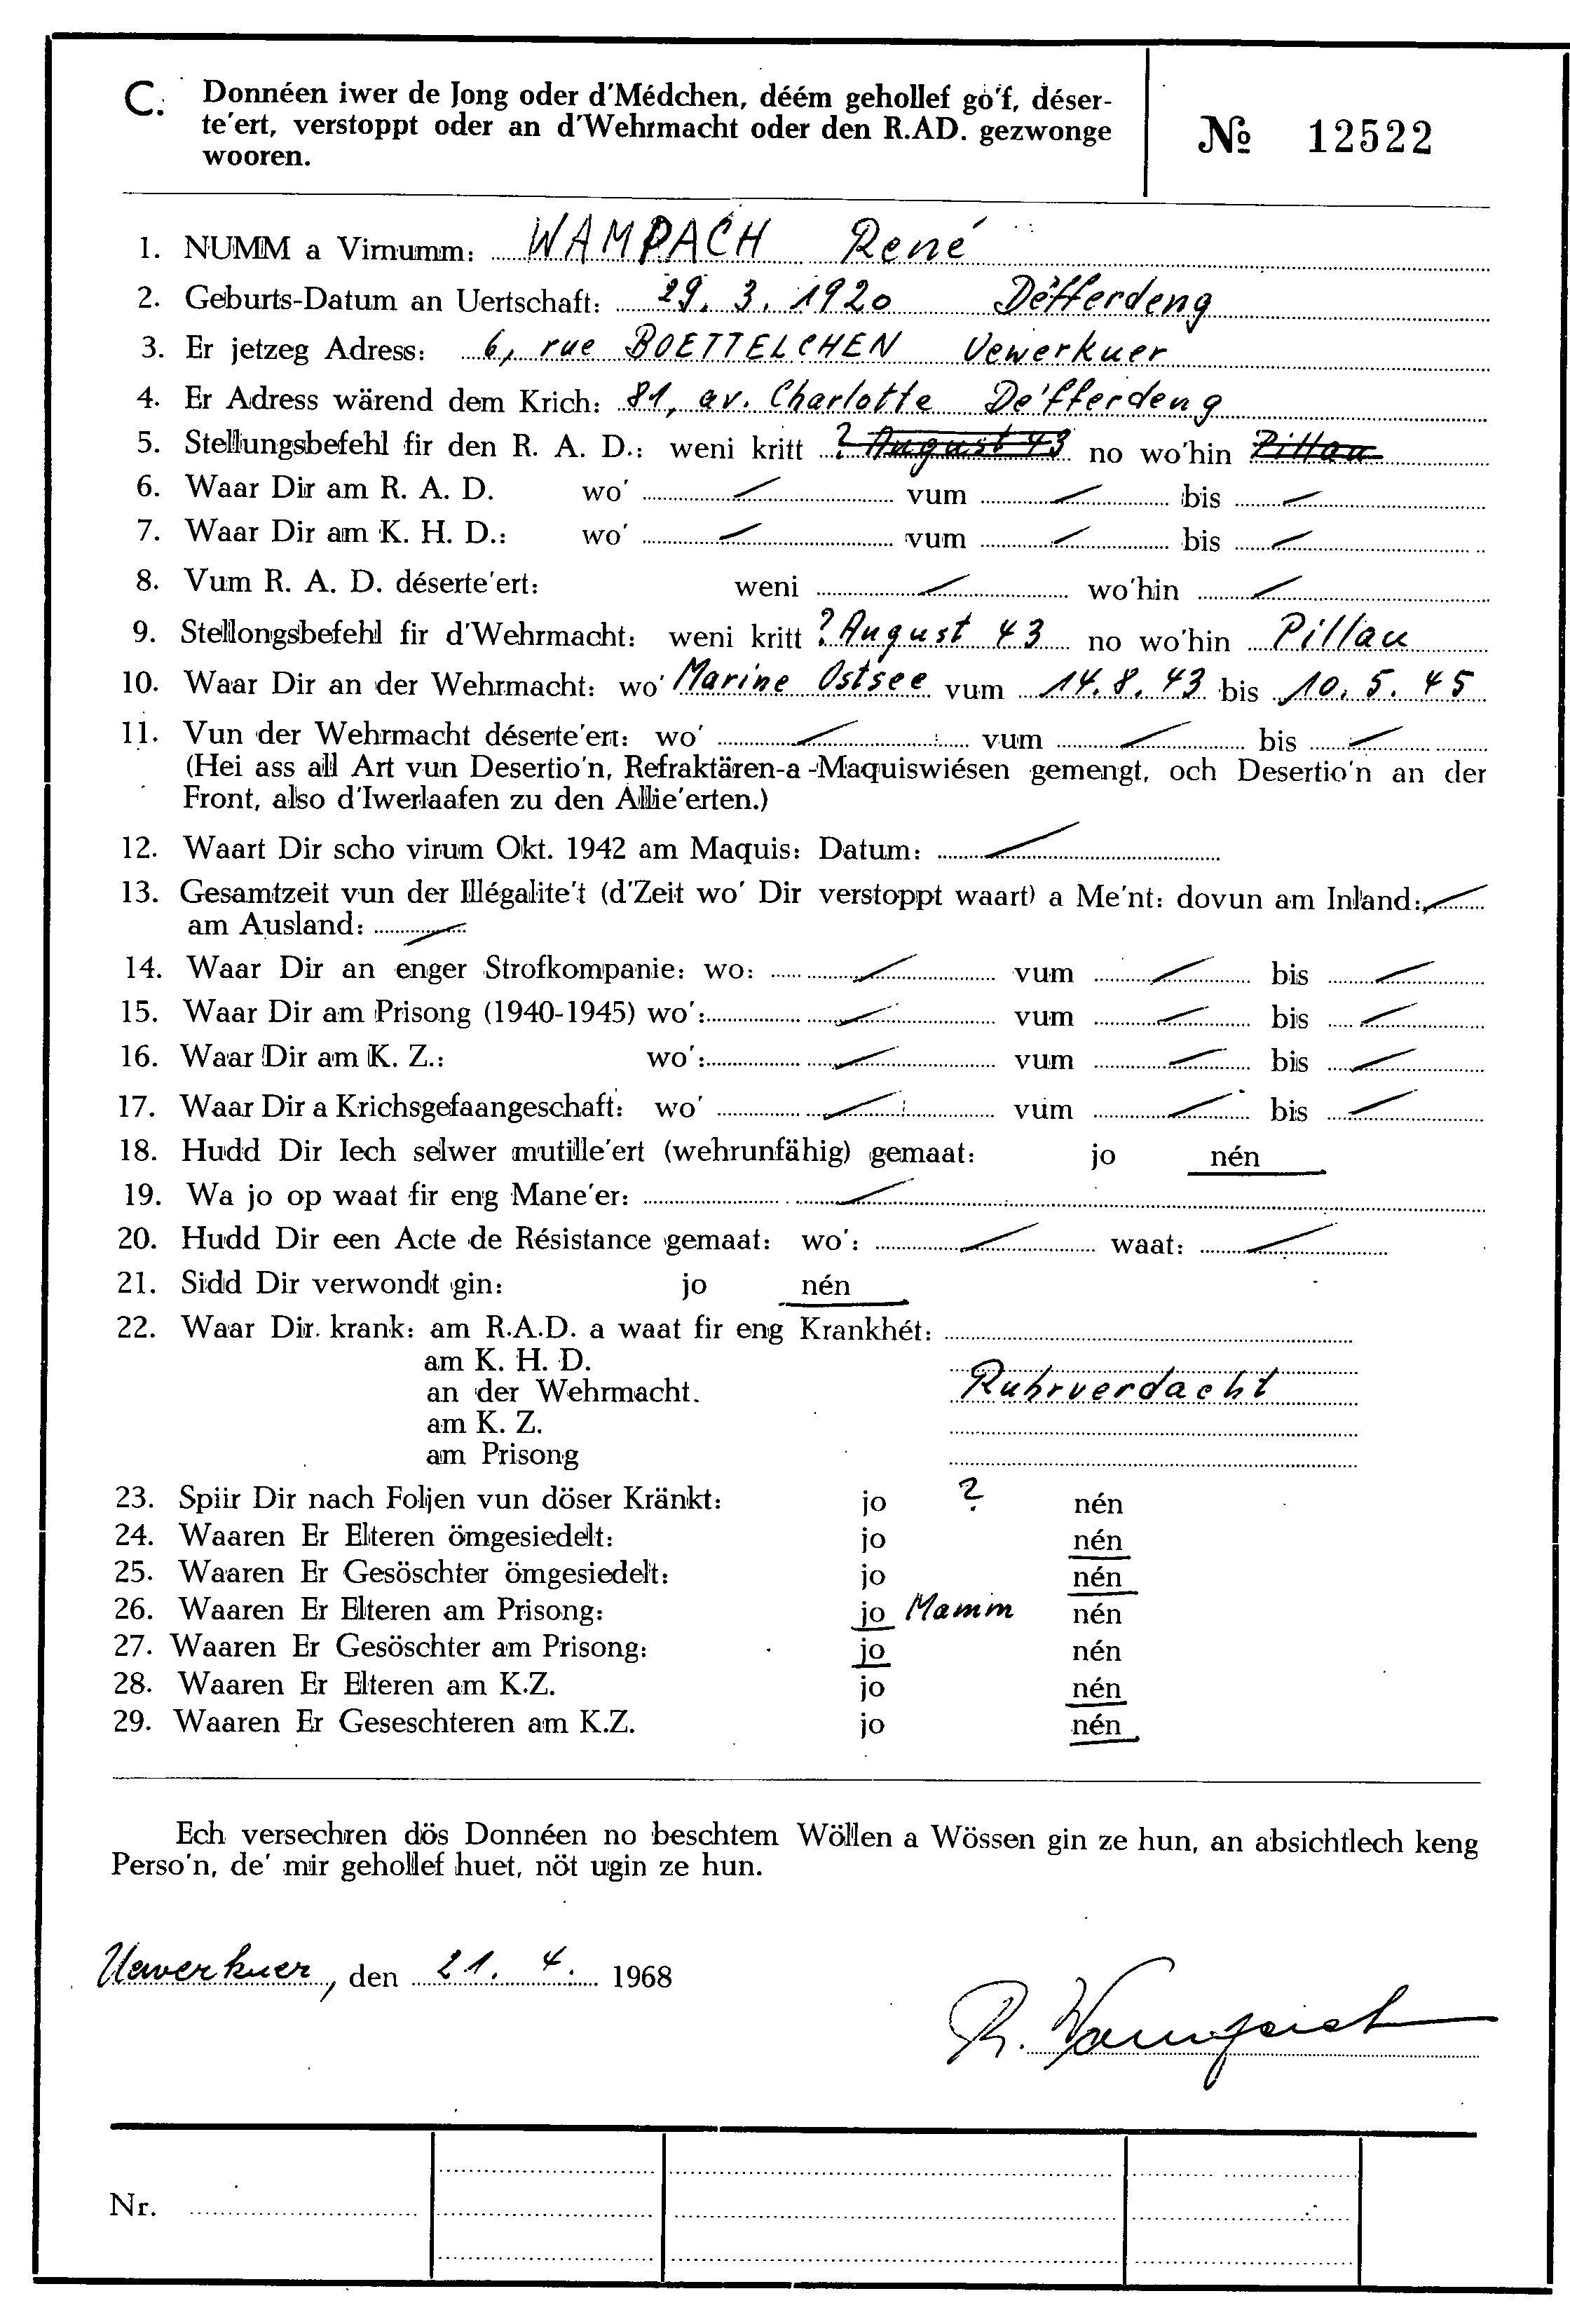 C. Donnéen iwer de Jong oder d'Médchen, déém gehollef go'f, déser-
te'ert, verstoppt oder an d'Wehrmacht oder den R.AD. gezwonge
wooren.
№ 12522
1. NUMM a Virnumm: WAMPACH René
2. Geburts-Datum an Uertschaft: 29. 3. 1920 Déifferdeng
3. Er jetzeg Adress: 6, rue BOETTELCHEN Uewerkuer
4. Er Adress wärend dem Krich: 81, av. Charlotte De'fferdeng
5. Stellungsbefehl fir den R. A. D.: weni kritt ? August 43 no wo'hin Pillau
6. Waar Dir am R. A. D. wo' — vum — bis —
7. Waar Dir am K. H. D.: wo' — vum — bis —
8. Vum R. A. D. déserte'ert: weni — wo'hin —
9. Stellongsbefehl fir d'Wehrmacht: weni kritt ? August 43 no wo'hin Pillau
10. Waar Dir an der Wehrmacht: wo' Marine Ostsee vum 14. 8. 43 bis 10. 5. 45
11. Vun der Wehrmacht déserte'ert: wo' — vum — bis —
(Hei ass all Art vun Desertio'n, Refraktären-a -Maquiswiésen gemengt, och Desertio'n an der
Front, also d'Iwerlaafen zu den Allie'erten.)
12. Waart Dir scho virum Okt. 1942 am Maquis: Datum: —
13. Gesamtzeit vun der Illégalite't (d'Zeit wo' Dir verstoppt waart) a Me'nt: dovun am Inland: —
am Ausland: —
14. Waar Dir an enger Strofkompanie: wo: — vum — bis —
15. Waar Dir am Prisong (1940-1945) wo': — vum — bis —
16. Waar Dir am K. Z.: wo': — vum — bis —
17. Waar Dir a Krichsgefaangeschaft: wo' — vum — bis —
18. Hudd Dir Iech selwer mutille'ert (wehrunfähig) gemaat: jo nén
19. Wa jo op waat fir eng Mane'er: —
20. Hudd Dir een Acte de Résistance gemaat: wo': — waat: —
21. Sidd Dir verwondt gin: jo nén
22. Waar Dir. krank: am R.A.D. a waat fir eng Krankhét:
am K. H. D.
an der Wehrmacht. Ruhrverdacht
am K. Z.
am Prisong
23. Spiir Dir nach Foljen vun döser Kränkt: jo ? nén
24. Waaren Er Elteren ömgesiedelt: jo nén
25. Waaren Er Gesöschter ömgesiedelt: jo nén
26. Waaren Er Elteren am Prisong: jo Mamm nén
27. Waaren Er Gesöschter am Prisong: jo nén
28. Waaren Er Elteren am K.Z. jo nén
29. Waaren Er Geseschteren am K.Z. jo nén
Ech versechren dös Donnéen no beschtem Wöllen a Wössen gin ze hun, an absichtlech keng
Perso'n, de' mir gehollef huet, nöt ugin ze hun.
Uewerkuer, den 21. 4. 1968
R. Wampach
Nr.